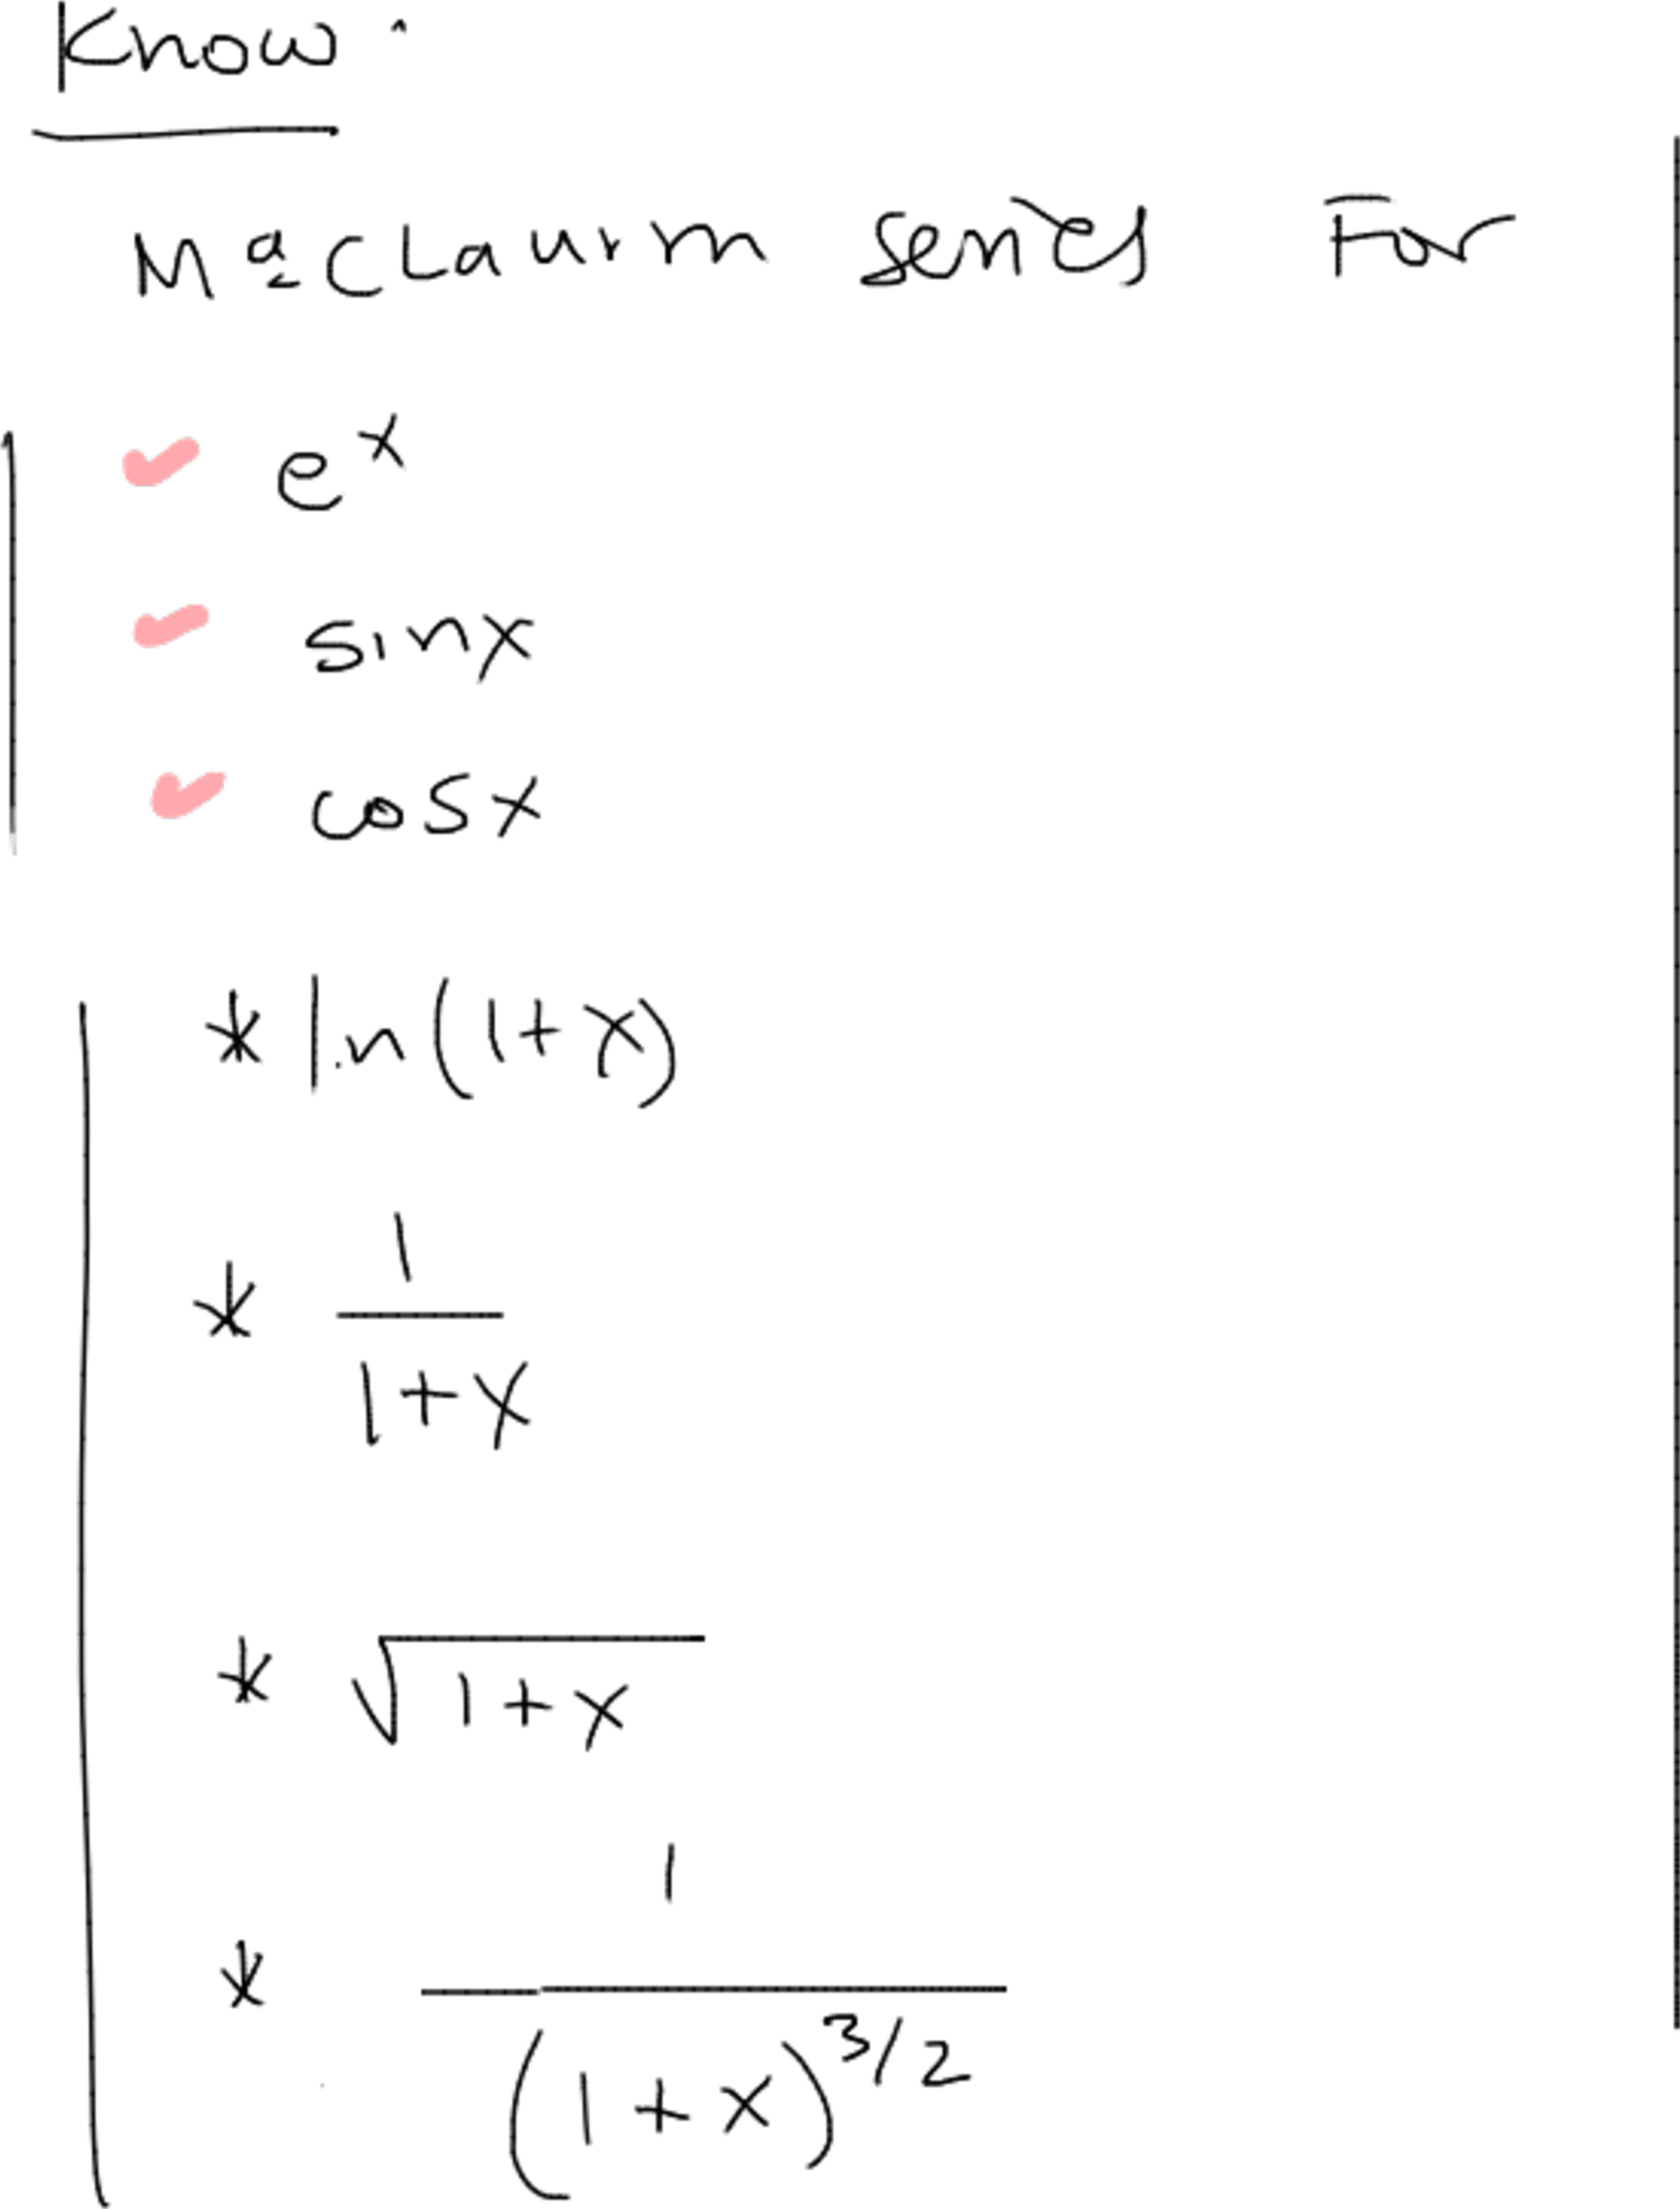 Know:
MacLaurin series For
✓ e^x
✓ sinx
✓ cosx
* ln(1+x)
* 1/(1+x)
* √(1+x)
* 1/(1+x)^3/2